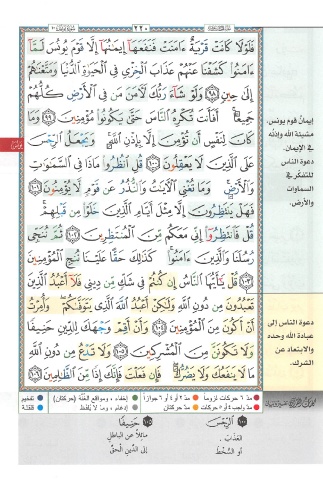 ٢٢٠
فَلَوْلَا كَانَتْ قَرْيَةٌ ءَامَنَتْ فَنَفَعَهَا إِيمَٰنُهَا إِلَّا قَوْمَ يُونُسَ لَمَّا
ءَامَنُوا۟ كَشَفْنَا عَنْهُمْ عَذَابَ الْخِزْيِ فِي الْحَيَوٰةِ الدُّنْيَا وَمَتَّعْنَٰهُمْ
إِلَىٰ حِينٍ ٩٨ وَلَوْ شَآءَ رَبُّكَ لَـَٔامَنَ مَن فِي الْأَرْضِ كُلُّهُمْ
جَمِيعًا ۚ أَفَأَنتَ تُكْرِهُ النَّاسَ حَتَّىٰ يَكُونُوا۟ مُؤْمِنِينَ ٩٩ وَمَا
كَانَ لِنَفْسٍ أَن تُؤْمِنَ إِلَّا بِإِذْنِ اللَّهِ ۚ وَيَجْعَلُ الرِّجْسَ
عَلَى الَّذِينَ لَا يَعْقِلُونَ ١٠٠ قُلِ انظُرُوا۟ مَاذَا فِي السَّمَٰوَٰتِ
وَالْأَرْضِ ۚ وَمَا تُغْنِي الْـَٔايَٰتُ وَالنُّذُرُ عَن قَوْمٍ لَّا يُؤْمِنُونَ ١٠١
فَهَلْ يَنتَظِرُونَ إِلَّا مِثْلَ أَيَّامِ الَّذِينَ خَلَوْا۟ مِن قَبْلِهِمْ ۚ
قُلْ فَانتَظِرُوٓا۟ إِنِّي مَعَكُم مِّنَ الْمُنتَظِرِينَ ١٠٢ ثُمَّ نُنَجِّي
رُسُلَنَا وَالَّذِينَ ءَامَنُوا۟ ۚ كَذَٰلِكَ حَقًّا عَلَيْنَا نُنجِ الْمُؤْمِنِينَ
١٠٣ قُلْ يَٰٓأَيُّهَا النَّاسُ إِن كُنتُمْ فِي شَكٍّ مِّن دِينِي فَلَآ أَعْبُدُ الَّذِينَ
تَعْبُدُونَ مِن دُونِ اللَّهِ وَلَٰكِنْ أَعْبُدُ اللَّهَ الَّذِي يَتَوَفَّىٰكُمْ ۖ وَأُمِرْتُ
أَنْ أَكُونَ مِنَ الْمُؤْمِنِينَ ١٠٤ وَأَنْ أَقِمْ وَجْهَكَ لِلدِّينِ حَنِيفًا
وَلَا تَكُونَنَّ مِنَ الْمُشْرِكِينَ ١٠٥ وَلَا تَدْعُ مِن دُونِ اللَّهِ
مَا لَا يَنفَعُكَ وَلَا يَضُرُّكَ ۖ فَإِن فَعَلْتَ فَإِنَّكَ إِذًا مِّنَ الظَّٰلِمِينَ ١٠٦
إيمانُ قوم يونس.
مشيئة الله وإذنُه
في الإيمان.
دعوة الناس
للتفكّر في
السماوات
والأرض.
دعوة الناس إلى
عبادة الله وحده
والابتعاد عن
الشرك.
يونس
مدّ ٦ حركات لزوماً مدّ ٢ أو ٤ أو ٦ جوازاً إخفاء، ومواقع الغُنَّة (حركتان) تفخيم
مدّ واجب ٤ أو ٥ حركات مدّ حركتان إدغام، وما لا يُلفَظ قلقلة
الرِّجْسَ
العَذابَ.
أو السُّخْطَ
حَنِيفًا
مائلاً عن الباطل
إلى الدّين الحقّ